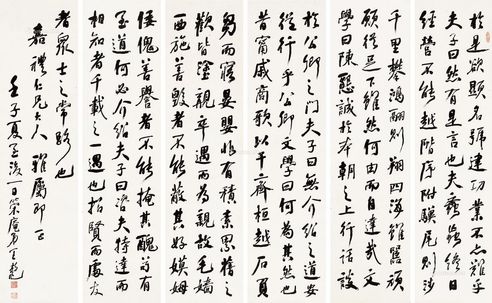 於是欲顯名號建功業不亦難乎
夫子曰然有是言也夫蚊虻終日
經營不能越階序附驥尾則涉
千里攀鴻翮則翔四海僕雖嚚頑
願從足下雖然何由而自達哉文
學曰陳懇誠於本朝之上行話談
於公卿之門夫子曰無介紹之道安
從行乎公卿文學曰何為其然也
昔甯戚商歌以干齊桓越石負
芻而寤晏嬰非有積素累舊之
歡皆塗覯卒遇而為親故毛嬙
西施善毀者不能蔽其好嫫姆
倭傀善譽者不能掩其醜苟有
至道何必介紹夫子曰咨夫特達而
相知者千載之一遇也招賢而處友
者眾士之常路也
嘉禮仁兄大人 雅屬即正
壬子夏至後一日